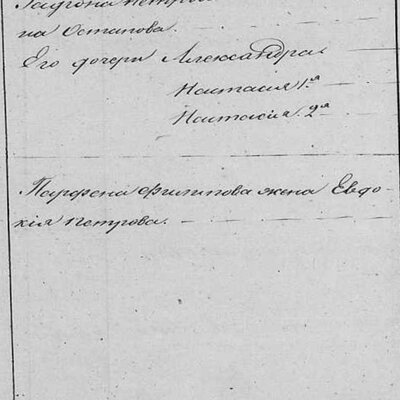 на Остапова.
Его дочери Александра
Настасия 1.я
Настасия. 2я
Парфена Филипова жена Евдо-
кія Петрова.